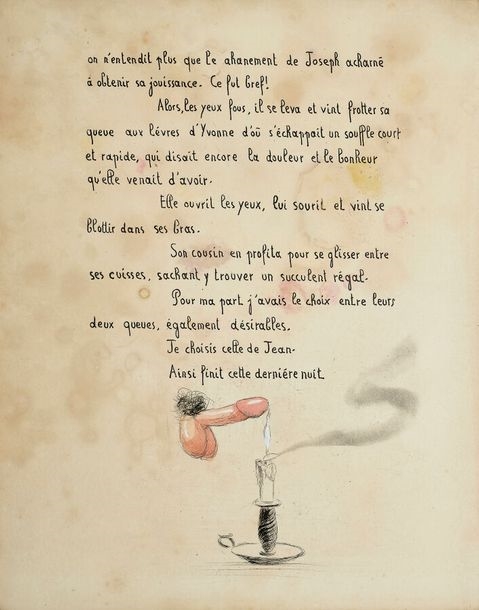 on n'entendit plus que le ahanement de Joseph acharné
à obtenir sa jouissance. Ce fut bref!
Alors, les yeux fous, il se leva et vint frotter sa
queue aux lévres d'Yvonne d'où s'échappait un souffle court
et rapide, qui disait encore la douleur et le bonheur
qu'elle venait d'avoir.
Elle ouvrit les yeux, lui sourit et vint se
blottir dans ses bras.
Son cousin en profita pour se glisser entre
ses cuisses, sachant y trouver un succulent régal.
Pour ma part j'avais le choix entre leurs
deux queues, également désirables.
Je choisis celle de Jean.
Ainsi finit cette derniére nuit.